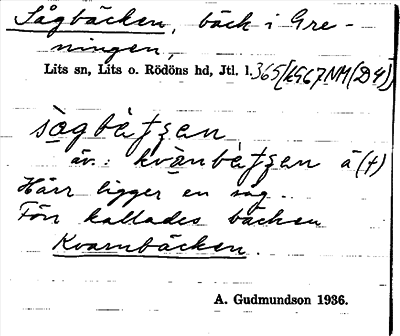 Sågbäcken, bäck i Gre-
ningen,
Lits sn, Lits o. Rödöns hd, Jtl. l. 365[kG67NM(D4)]
sågbètʃen
äv.: kvànbètʃen å (+)
Här ligger en såg.
Förr kallades bäcken
Kvarnbäcken.
A. Gudmundson 1936.